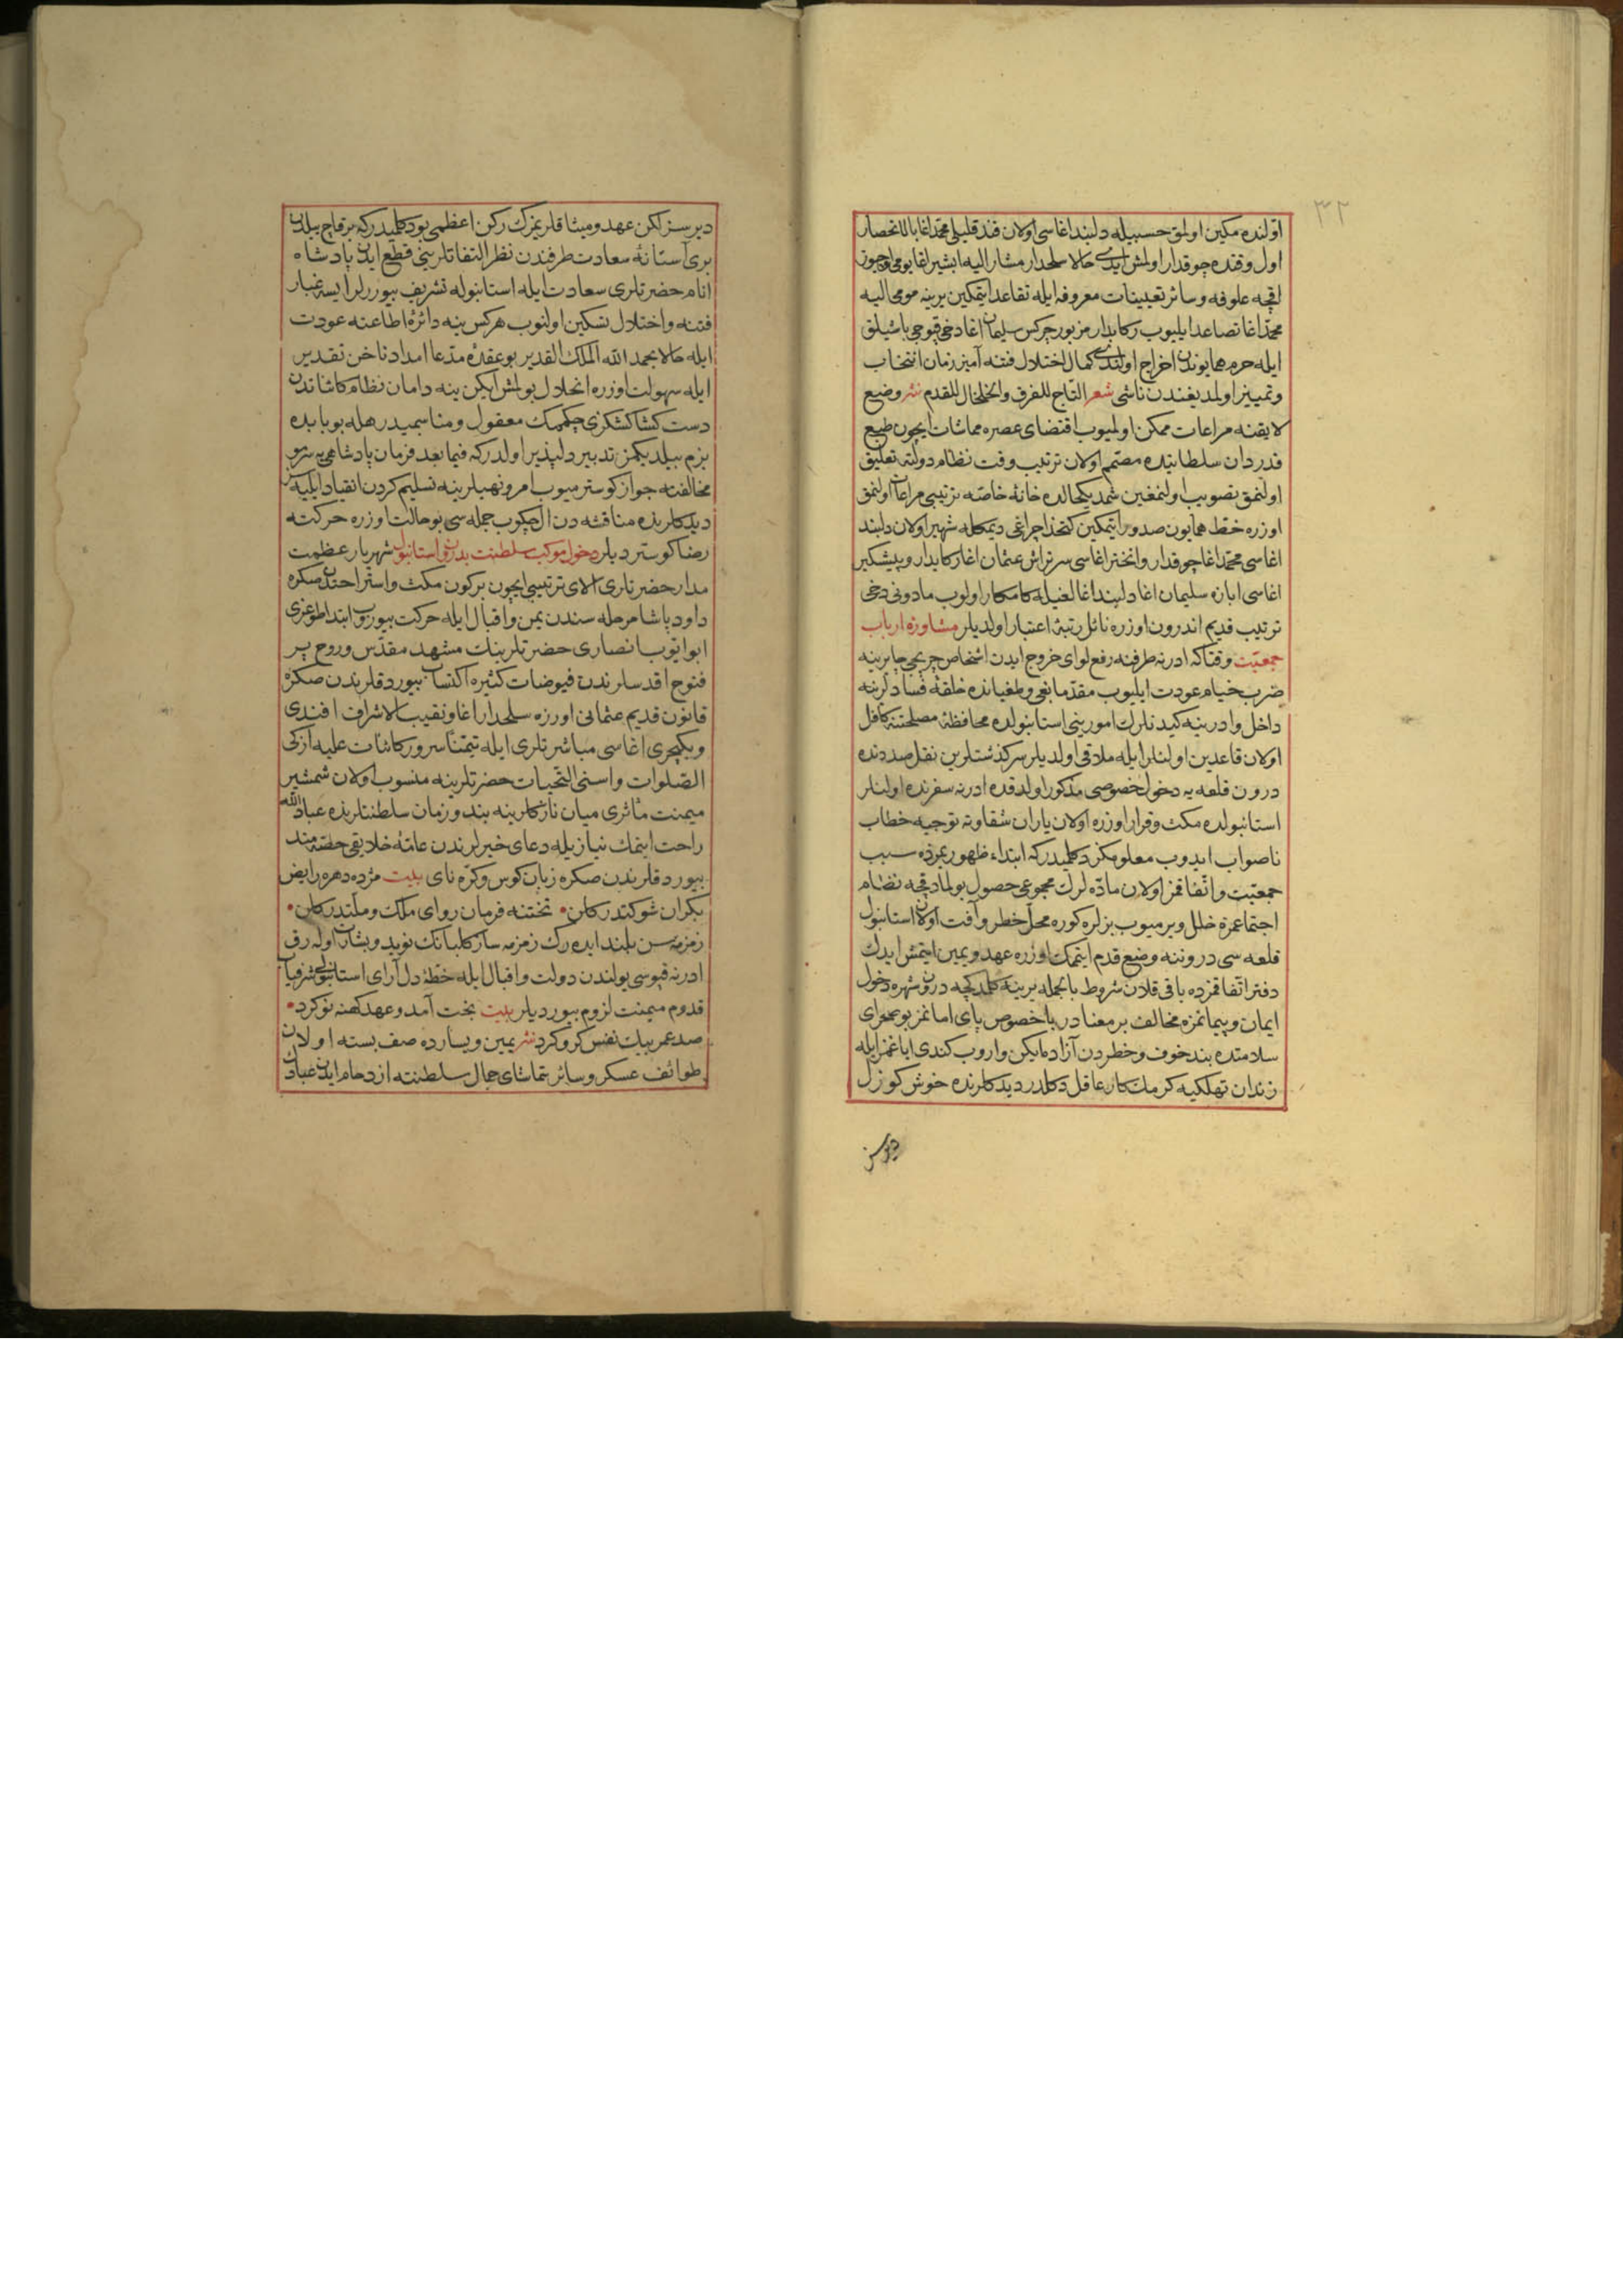 ٣٢
اولنده مكين اولمق حسبيله دلبند اغاسى اولان فندقليلى محمد اغا بالانحصار
اول وقتده چوقدار اولمش ايدى حالا سلحدار مشار اليه ابشير اغا يومى اوچيوز
اقچه علوفه وسائر تعيينات معروفه ايله تقاعد ايتمكين يرينه مومى اليه
محمد اغا تصاعد ايليوب ركابدار مزبور چركس سليمان اغا دخى قپوجى باشيلق
ايله حرم همايوندن اخراج اولندى كمال اختلال فتنه آميز زمان انتخاب
وتمييز اولمديغندن ناشى شعر التاج للفرق والخلخال للقدم نثر وضيع
لايقنه مراعات ممكن اولميوب اقتضاى عصره مماشات ايچون طبع
قدردان سلطانيده مصمم اولان ترتيب وقت نظام دولته تعليق
اولنمق تصويب اولنمغين شمديكحالده خانهٔ خاصه ترتيبى مراعات اولنمق
اوزره خط همايون صدور ايتمكين كتخدا چراغى ديمكله شهير اولان دلبند
اغاسى محمد اغا چوقدار وانختر اغاسى سرتراش عثمان اغا ركابدار وپيشكير
اغاسى ابازه سليمان اغا دلبند اغالغيله كامكار اولوب مادونى دخى
ترتيب قديم اندرون اوزره نائل رتبهٔ اعتبار اولديلر مشاوره ارباب
جمعيت وقتاكه ادرنه طرفنه رفع لواى خروج ايدن اشخاص چريجى جايرينه
ضرب خيام عودت ايليوب مقدما بغى وطغيانده حلقهٔ فسادلرينه
داخل وادرنيه كيدنلرك امورينى استانبولده محافظهٔ مصلحتنه كافل
اولان قاعدين اولنلر ايله ملاقى اولديلر سركذشتلرين نقل صددنده
درون قلعه يه دخول خصوصى مذكور اولدقده ادرنه سفرنده اولنلر
استانبولده مكث وقرار اوزره اولان ياران شقاوته توجيه خطاب
ناصواب ايدوب معلومكز دكلميدركه ابتداء ظهوريمزده سبب
جمعيت واتفاقمز اولان مادّه لرك مجموعى حصول بولمادقچه نظام
اجتماعمزه خلل ويرميوب بزلره كوره محل خطر وآفت اولان استانبول
قلعه سى دروننه وضع قدم ايتمامك اوزره عهد ويمين ايتمش ايدك
دفتر اتفاقمزده باقى قلان شروط بالجمله يرينه كلمدكچه درون شهره دخول
ايمان وپيمانمزه مخالف بر معنادر باخصوص پاى امانمز بو صحراى
سلامتده بند خوف وخطردن آزاده ايكن واروب كندى اياغمز ايله
زندان تهلكيه كرمك كار عاقل دكلدر ديدكلرنده خوش كوزل
ديرسز
ديرسز لكن عهد وميثاقلريمزك ركن اعظمى بو دكلميدركه بر قاچ ييلدن
برى آستانهٔ سعادت طرفندن نظر التفاتلرينى قطع ايدن پادشاه
انام حضرتلرى سعادت ايله استانبوله تشريف بيوررلر ايسه غبار
فتنه واختلال تسكين اولنوب هركس ينه دائرهٔ اطاعته عودت
ايله حالا بحمد الله الملك القدير بو عقدهٔ مدعا امداد ناخن تقدير
ايله سهولت اوزره انحلال بولمش ايكن ينه دامان نظام كائناتدن
دست كشاكشكرى چكمامك معقول ومناسبميدر هله بو بابده
بزم بيلديكمز تدبير دلپذير اولدركه فيما بعد فرمان پادشاهى يه سرمو
مخالفته جواز كوسترميوب امر ونهيلرينه تسليم كردن انقياد ايليه لم
ديدكلرنده مناقشه دن ال چكوب جمله سى بو حالت اوزره حركته
رضا كوسترديلر دخول موكب سلطنت بدرون استانبول شهريار عظمت
مدار حضرتلرى الاى ترتيبى ايچون بر كون مكث واستراحتدن صكره
داود پاشا مرحله سندن يمن واقبال ايله حركت بيورب ابتدا طوغرى
ابو ايوب انصارى حضرتلرينك مشهد مقدس وروح پر
فتوح اقدسلرندن فيوضات كثيره اكتساب بيوردقلرندن صكره
قانون قديم عثمانى اوزره سلحدار اغا ونقيب الاشراف افندى
ويكيچرى اغاسى مباشرتلرى ايله تيمنا سرور كائنات عليه ازكى
الصلوات واسنى التحيات حضرتلرينه منسوب اولان شمشير
ميمنت مآثرى ميان نازكلرينه بند وزمان سلطنتلرنده عباد الله
راحت ايتمك نيازيله دعاى خيرلرندن عامهٔ خلايقى حصه مند
بيوردقلرندن صكره زبان كوس وكره ناى بيت مژده دهر ه رايض
يكران شوكتدر كلن • تختنه فرمان رواى ملك وملتدر كلن •
زمزمه سن بلند ايده رك زمزمه ساز كلبانك نويد وبشارت اوله رق
ادرنه قپوسى يولندن دولت واقبال ايله خطهٔ دل آراى استانبولى شرفياب
قدوم ميمنت لزوم بيورديلر بيت بخت آمد وعهد كهنه نو كرد •
صد عمر بيك نفس كرو كرد نثر يمين ويسارده صف بسته اولان
طوائف عسكر وسائر تماشاى جمال سلطنته ازدحام ايدن عبادك